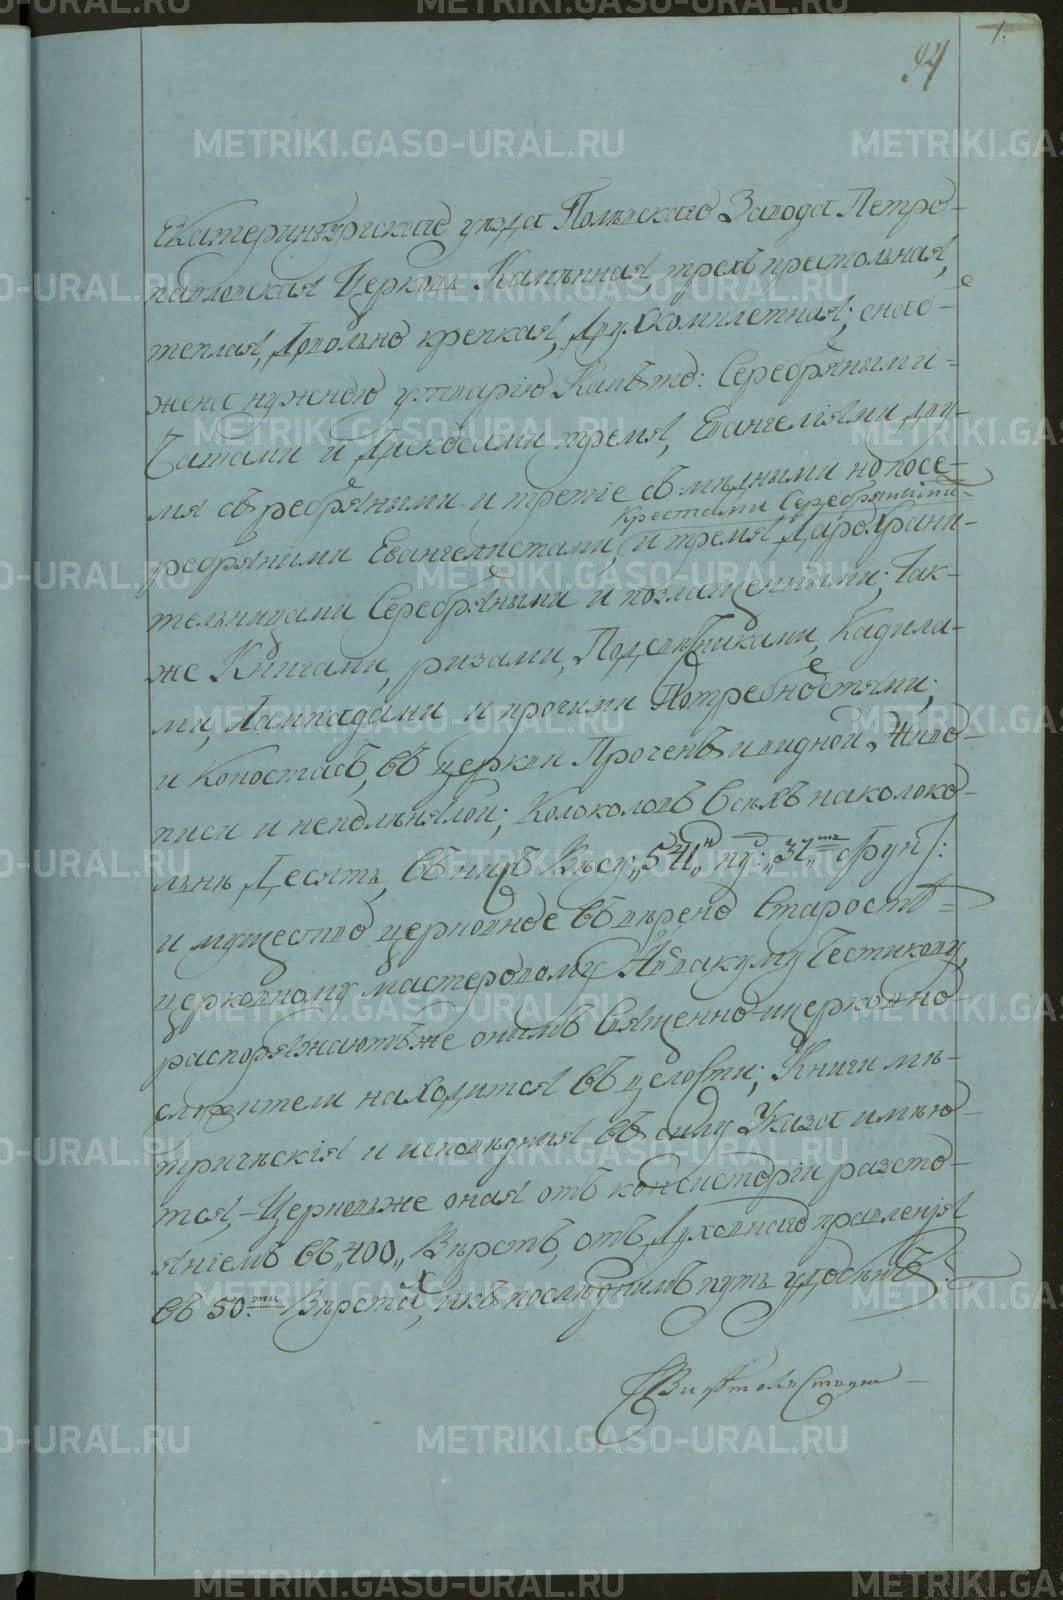 1.
94
Екатеринбургскаго уѣзда Полевскаго Завода Петро-
павловская Церковь Камѣнная, трехъ престольная,
теплая, Довольно крепкая, Двухкомплетная; снаб-
жена нужною утварію Какъ то: Серебряными
Чашами и Дискосами тремя, Евангеліями дву-
мя сѣребряными и третіе съ мѣдными но посе-
Крестами Серебряными
ребряными Евангелистами, и тремя Дарохрани-
тельницами Серебряными и позлащенными; Так-
же Книгами, ризами, Подсвѣчниками, Кадила-
ми, Лампадами и прочими Потребностями;
и Коностасъ, въ церкви Проченъ и видной, Живо-
писи и неполѣнялой; Колоколовъ всѣхъ на колоко-
льнѣ Десять, въ нихъ Вѣсу „541„ пуд: „32„ Фун:
и мущество церковное ввѣрено Старостѣ
церковному мастеровому Аввакуму Честикову,
распоряжаютъ же онымъ Священно-ицерковно-
служители находится въ целости; Книги мѣ-
тричѣскія и исповѣдныя въ силу Указа имѣю-
тся, Церковь же оная отъ консисторіи разсто-
яніемъ въ „400„ Вѣрстъ, отъ Духовнаго правленія
въ 50.ти Вѣрстах, и къ послѣднимъ путь удобѣнъ
METRIKI.GASO-URAL.RU